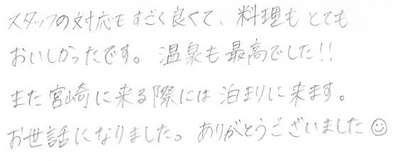 スタッフの対応もすごく良くて、料理もとても
おいしかったです。温泉も最高でした!!
また宮崎に来る際には泊まりに来ます。
お世話になりました。ありがとうございました☺